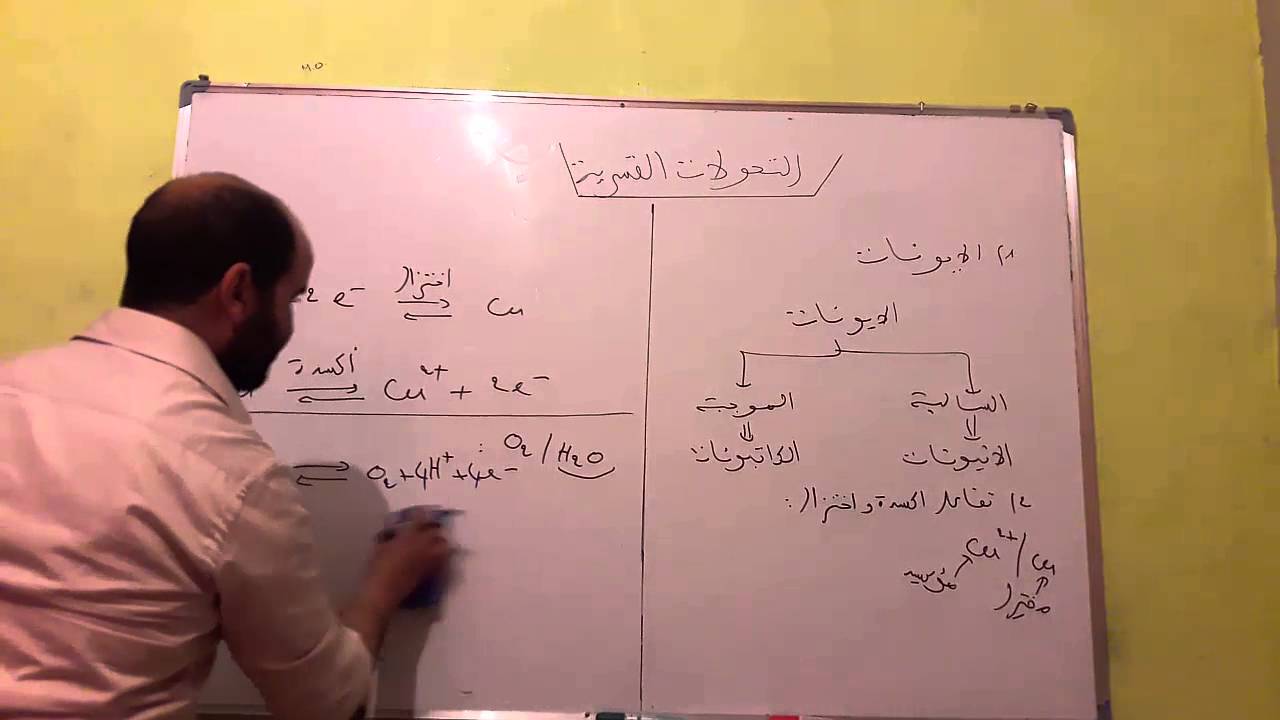 التحولات القسرية
1) الايونات
الايونات
السالبة الموجبة
⇓ ⇓
الانيونات الكاتيونات
2) تفاعل اكسدة واختزال:
Cu²⁺/Cu
مؤكسد
2 e⁻ ⇌ اختزال Cu
⇌ أكسدة Cu²⁺ + 2e⁻
: O₂/H₂O
⇌ O₂ + 4H⁺ + 4e⁻